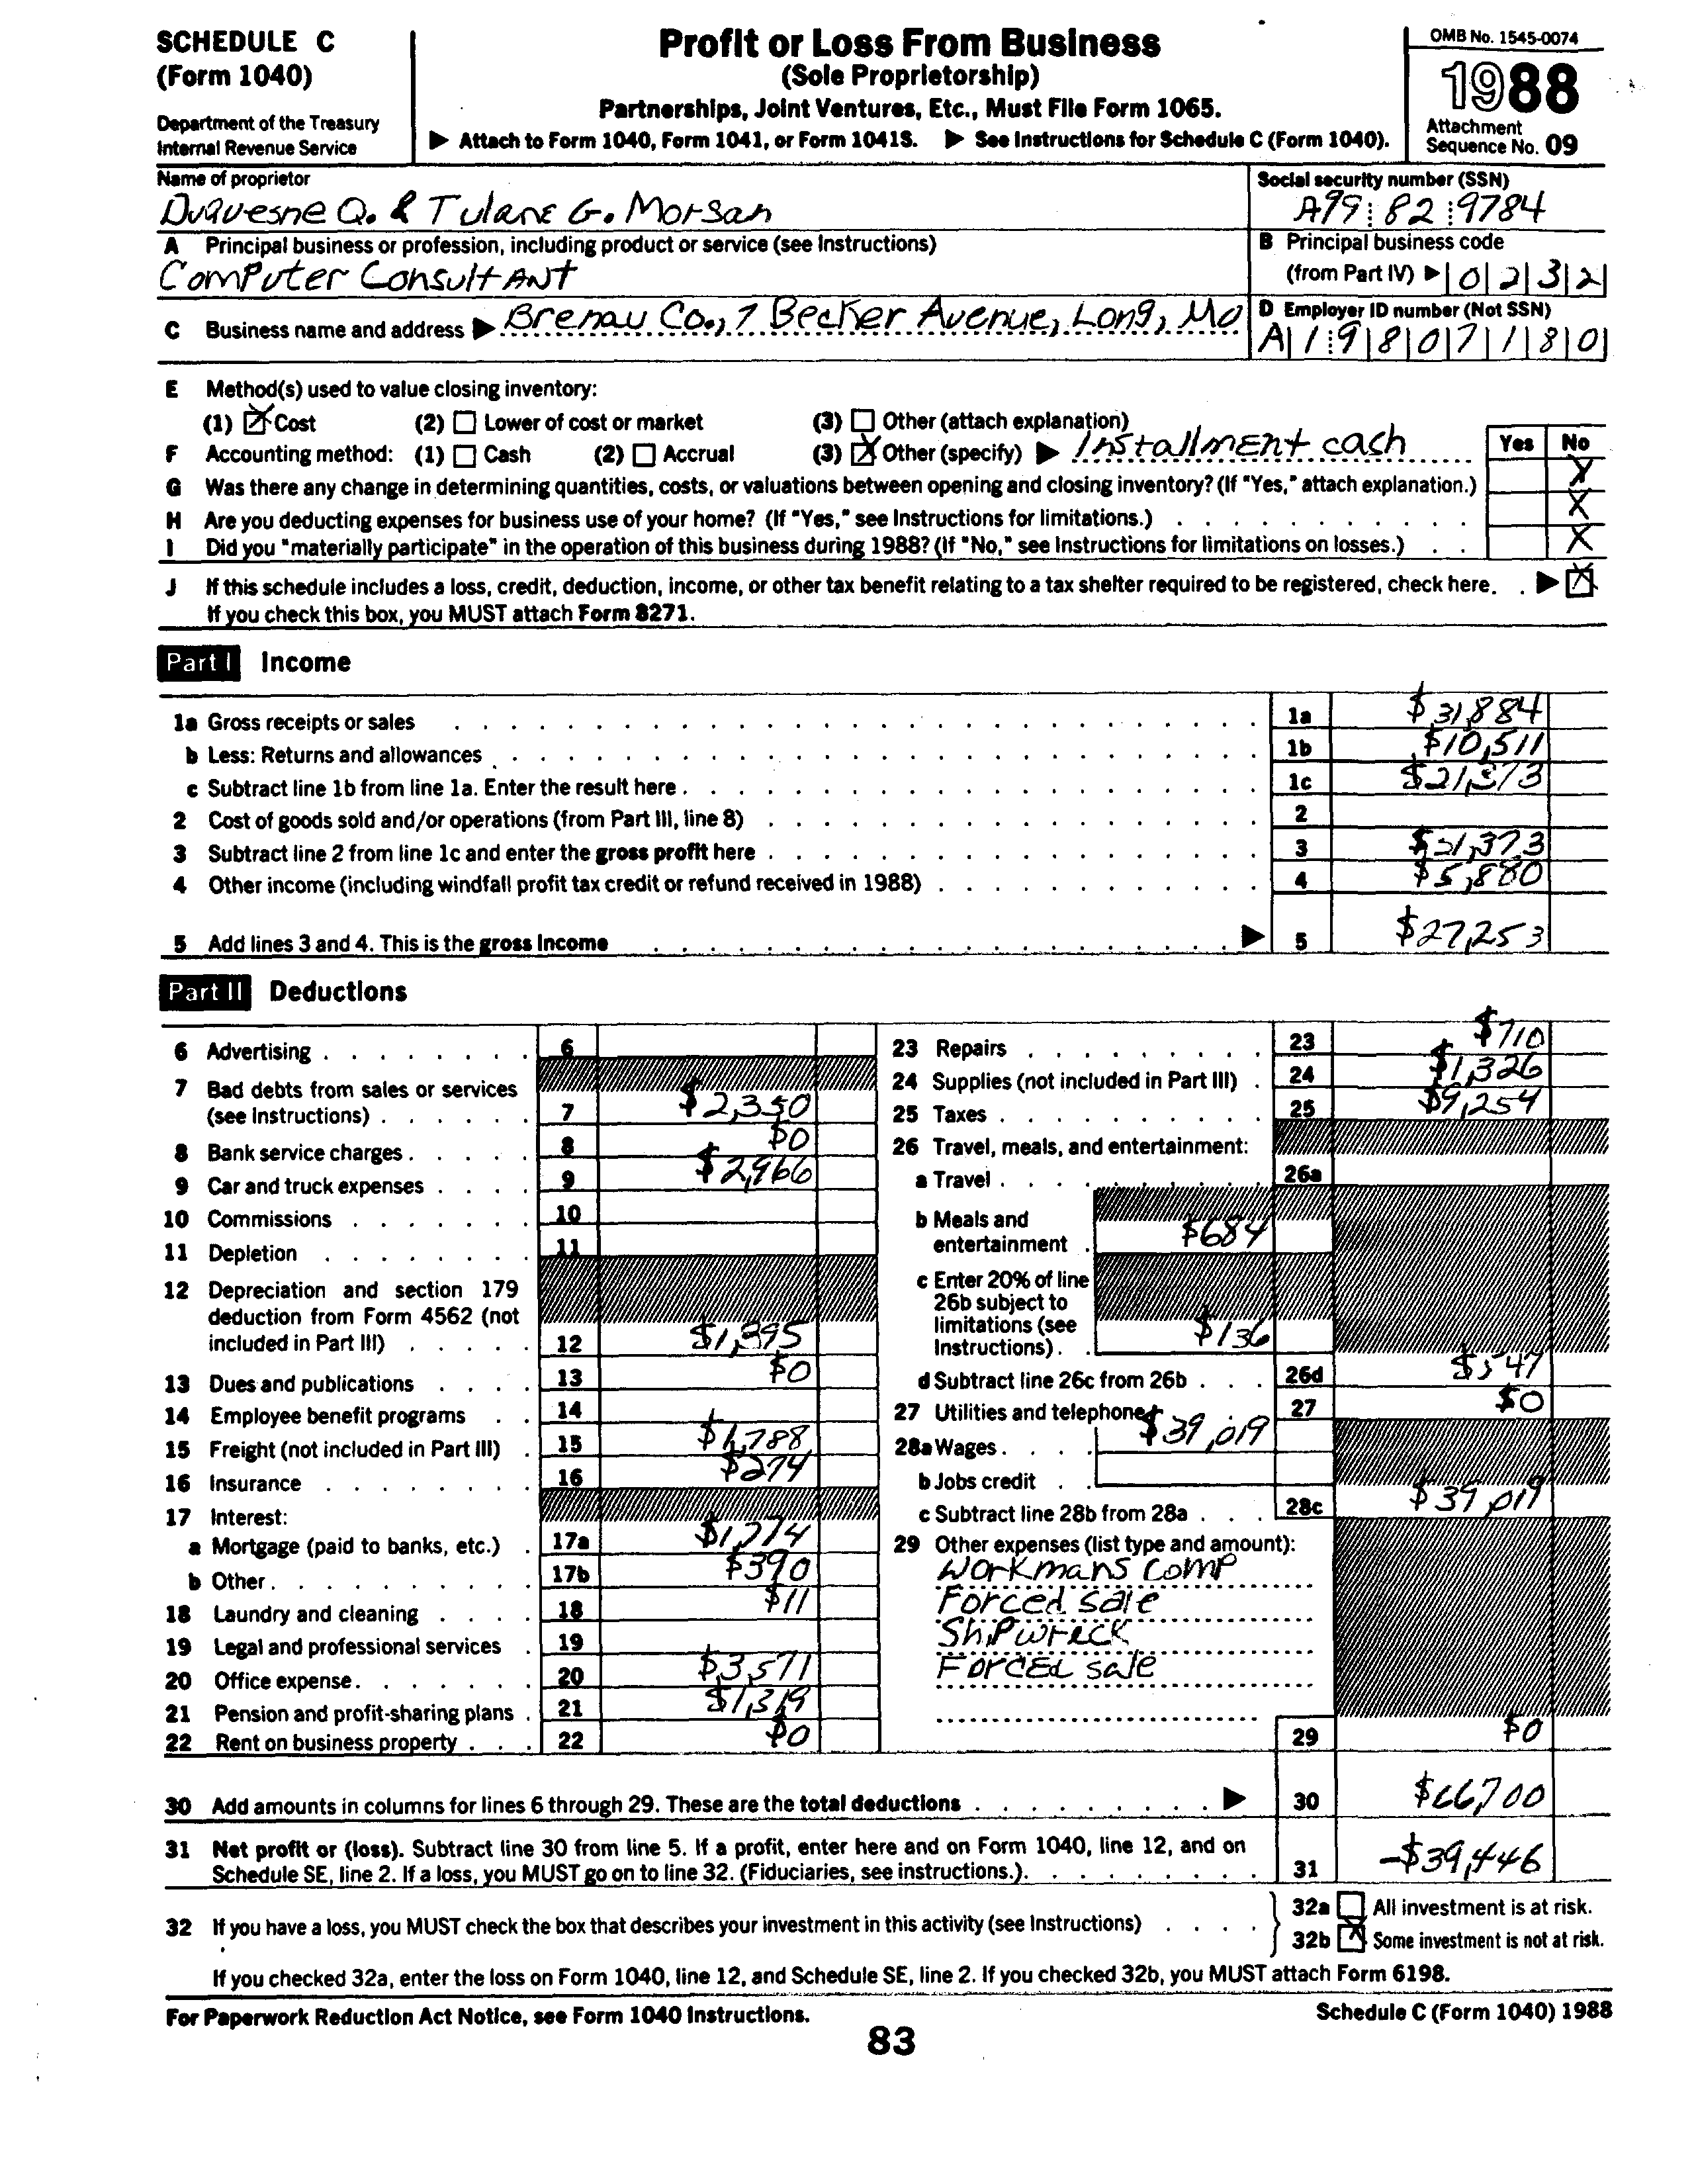 SCHEDULE C
(Form 1040)
Department of the Treasury
Internal Revenue Service
Profit or Loss From Business
(Sole Proprietorship)
Partnerships, Joint Ventures, Etc., Must File Form 1065.
▶ Attach to Form 1040, Form 1041, or Form 1041S. ▶ See Instructions for Schedule C (Form 1040).
OMB No. 1545-0074
1988
Attachment
Sequence No. 09
Name of proprietor
Duquesne Q. & Tulane G. Morgan
Social security number (SSN)
A99 82 9784
A Principal business or profession, including product or service (see Instructions)
Computer Consultant
B Principal business code
(from Part IV) ▶ 0 2 3 2
C Business name and address ▶ Brenau Co., 7 Becker Avenue, Long, Mo
D Employer ID number (Not SSN)
A 1 9 8 0 7 1 8 0
E Method(s) used to value closing inventory:
(1) ☒ Cost (2) ☐ Lower of cost or market (3) ☐ Other (attach explanation)
F Accounting method: (1) ☐ Cash (2) ☐ Accrual (3) ☒ Other (specify) ▶ Installment cash
Yes No
G Was there any change in determining quantities, costs, or valuations between opening and closing inventory? (If "Yes," attach explanation.) X
H Are you deducting expenses for business use of your home? (If "Yes," see Instructions for limitations.) X
I Did you "materially participate" in the operation of this business during 1988? (If "No," see Instructions for limitations on losses.) X
J If this schedule includes a loss, credit, deduction, income, or other tax benefit relating to a tax shelter required to be registered, check here. ▶ ☒
If you check this box, you MUST attach Form 8271.
Part I Income
1a Gross receipts or sales 1a $31,884
b Less: Returns and allowances 1b $10,511
c Subtract line 1b from line 1a. Enter the result here 1c $21,373
2 Cost of goods sold and/or operations (from Part III, line 8) 2
3 Subtract line 2 from line 1c and enter the gross profit here 3 $21,373
4 Other income (including windfall profit tax credit or refund received in 1988) 4 $5,880
5 Add lines 3 and 4. This is the gross income ▶ 5 $27,253
Part II Deductions
6 Advertising 6
7 Bad debts from sales or services
(see Instructions) 7 $2,350
8 Bank service charges 8 $0
9 Car and truck expenses 9 $2,966
10 Commissions 10
11 Depletion 11
12 Depreciation and section 179
deduction from Form 4562 (not
included in Part III) 12 $1,395
13 Dues and publications 13 $0
14 Employee benefit programs 14
15 Freight (not included in Part III) 15 $1,788
16 Insurance 16 $274
17 Interest:
a Mortgage (paid to banks, etc.) 17a $1,774
b Other 17b $390
18 Laundry and cleaning 18 $11
19 Legal and professional services 19
20 Office expense 20 $3,571
21 Pension and profit-sharing plans 21 $1,319
22 Rent on business property 22 $0
23 Repairs 23 $710
24 Supplies (not included in Part III) 24 $1,326
25 Taxes 25 $9,254
26 Travel, meals, and entertainment:
a Travel 26a
b Meals and
entertainment $684
c Enter 20% of line
26b subject to
limitations (see
Instructions) $136
d Subtract line 26c from 26b 26d $547
27 Utilities and telephone 27 $0
28a Wages $39,019
b Jobs credit
c Subtract line 28b from 28a 28c $39,019
29 Other expenses (list type and amount):
Workmans comp
Forced sale
Shipwreck
Forced sale
29 $0
30 Add amounts in columns for lines 6 through 29. These are the total deductions ▶ 30 $66,700
31 Net profit or (loss). Subtract line 30 from line 5. If a profit, enter here and on Form 1040, line 12, and on
Schedule SE, line 2. If a loss, you MUST go on to line 32. (Fiduciaries, see instructions.) 31 -$39,446
32 If you have a loss, you MUST check the box that describes your investment in this activity (see Instructions)
32a ☐ All investment is at risk.
32b ☒ Some investment is not at risk.
If you checked 32a, enter the loss on Form 1040, line 12, and Schedule SE, line 2. If you checked 32b, you MUST attach Form 6198.
For Paperwork Reduction Act Notice, see Form 1040 Instructions.
Schedule C (Form 1040) 1988
83